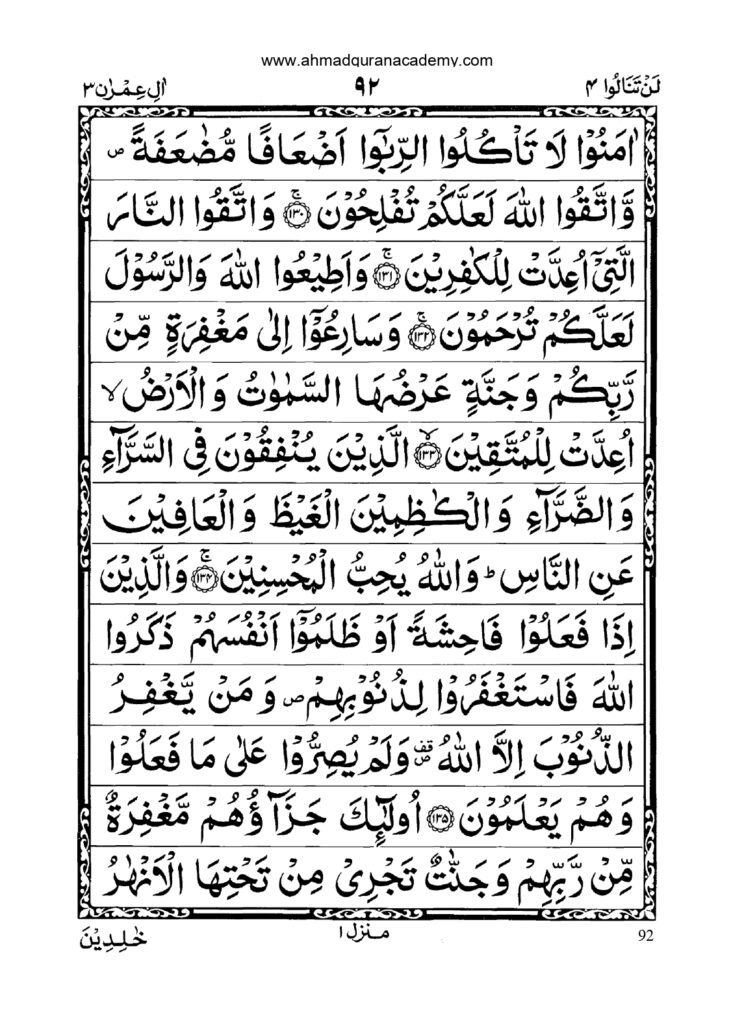 www.ahmadquranacademy.com
لَنْ تَنَالُوا ۴ ۹۲ اٰلِ عِمْرٰن ۳
اٰمَنُوْا لَا تَاْكُلُوا الرِّبٰٓوا اَضْعَافًا مُّضٰعَفَةً ۪
وَّاتَّقُوا اللّٰهَ لَعَلَّكُمْ تُفْلِحُوْنَ ۚ﴿۱۳۰﴾ وَاتَّقُوا النَّارَ
الَّتِيْٓ اُعِدَّتْ لِلْكٰفِرِيْنَ ۚ﴿۱۳۱﴾ وَاَطِيْعُوا اللّٰهَ وَالرَّسُوْلَ
لَعَلَّكُمْ تُرْحَمُوْنَ ۚ﴿۱۳۲﴾ وَسَارِعُوْٓا اِلٰى مَغْفِرَةٍ مِّنْ
رَّبِّكُمْ وَجَنَّةٍ عَرْضُهَا السَّمٰوٰتُ وَالْاَرْضُ ۙ
اُعِدَّتْ لِلْمُتَّقِيْنَ ۙ﴿۱۳۳﴾ الَّذِيْنَ يُنْفِقُوْنَ فِي السَّرَّآءِ
وَالضَّرَّآءِ وَالْكٰظِمِيْنَ الْغَيْظَ وَالْعَافِيْنَ
عَنِ النَّاسِ ؕ وَاللّٰهُ يُحِبُّ الْمُحْسِنِيْنَ ۚ﴿۱۳۴﴾ وَالَّذِيْنَ
اِذَا فَعَلُوْا فَاحِشَةً اَوْ ظَلَمُوْٓا اَنْفُسَهُمْ ذَكَرُوا
اللّٰهَ فَاسْتَغْفَرُوْا لِذُنُوْبِهِمْ ۪ وَمَنْ يَّغْفِرُ
الذُّنُوْبَ اِلَّا اللّٰهُ ۪۫ وَلَمْ يُصِرُّوْا عَلٰى مَا فَعَلُوْا
وَهُمْ يَعْلَمُوْنَ ﴿۱۳۵﴾ اُولٰٓئِكَ جَزَآؤُهُمْ مَّغْفِرَةٌ
مِّنْ رَّبِّهِمْ وَجَنّٰتٌ تَجْرِيْ مِنْ تَحْتِهَا الْاَنْهٰرُ
92 منزل ۱ خٰلِدِيْنَ